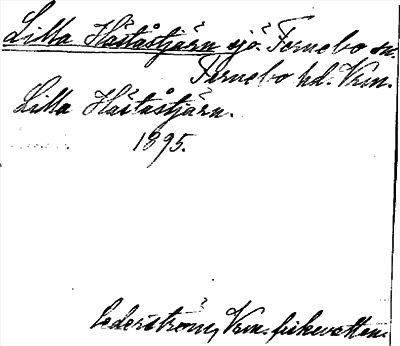 Lilla Häståstjärn sjö. Fernebo sn.
Fernebo hd. Vrm.
Lilla Häståstjärn.
1895.
Cederström, Vrm. fiskevatten.